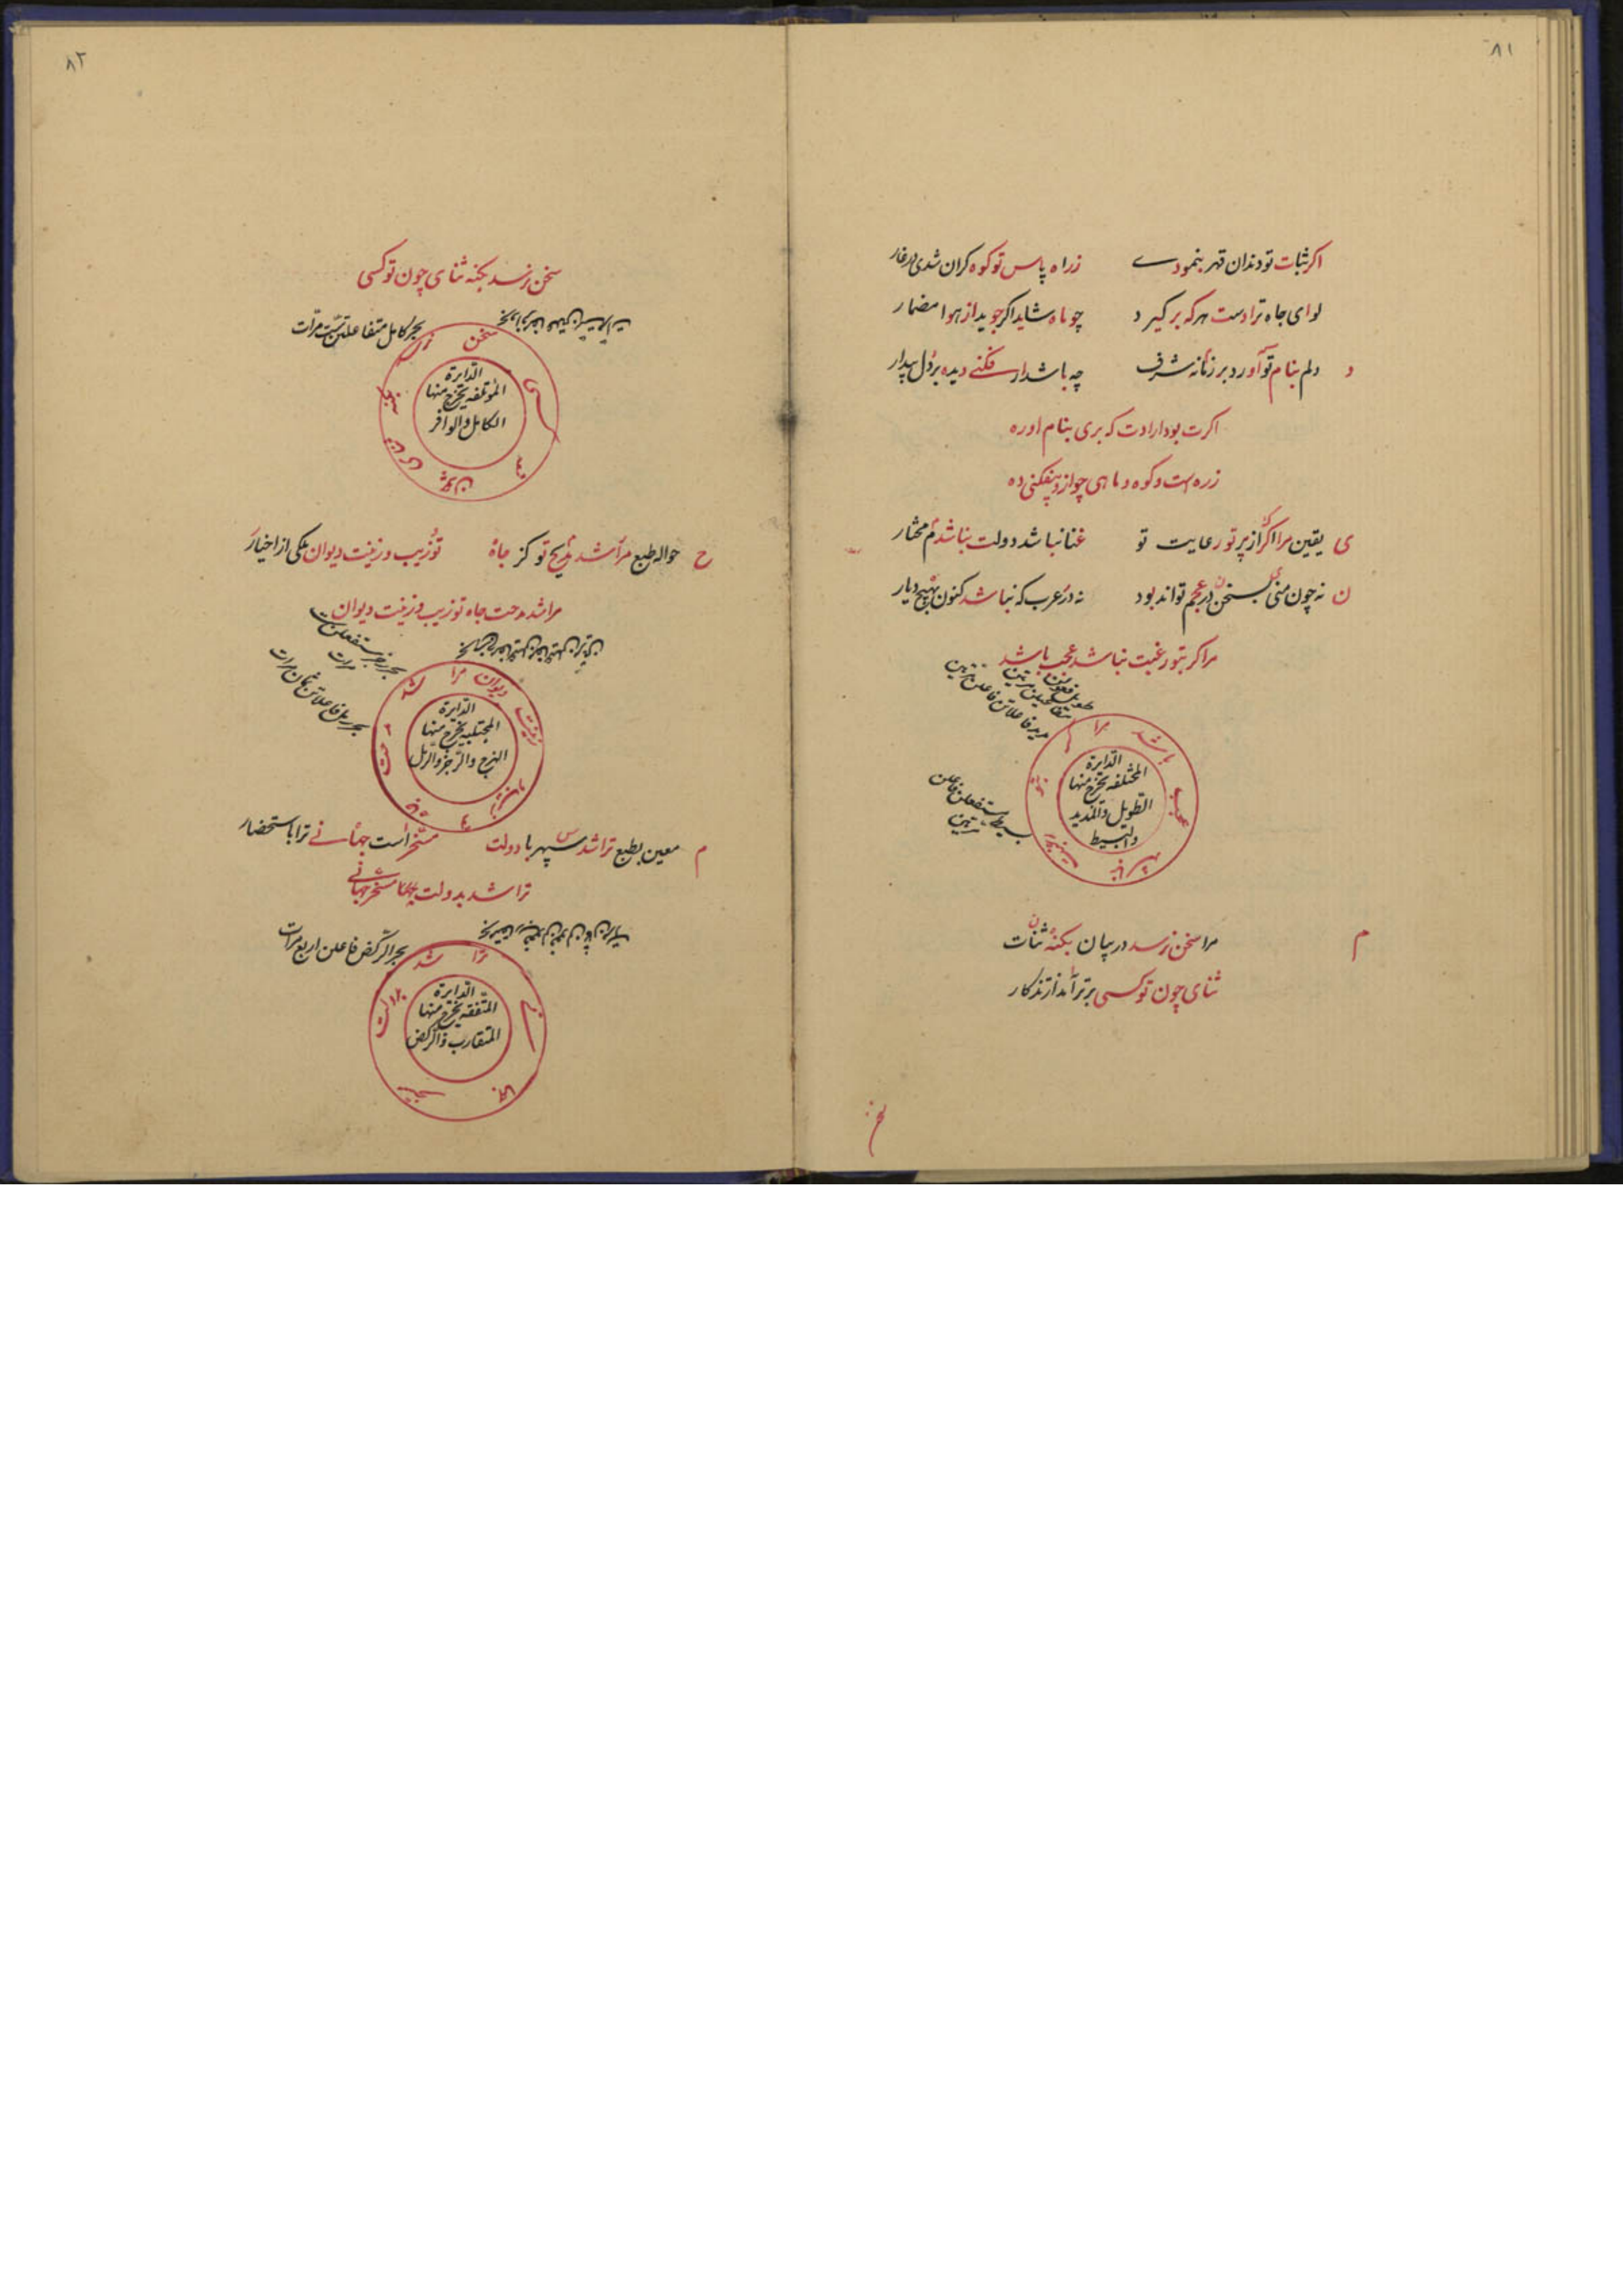 ٨١
اکر ثبات تو دندان قهر بنمودے زراه پاس تو کوه کران شدی در غار
لوای جاه ترا دست هرکه برکیرد چو ماه شاید اکر جوید از هوا مضمار
د دلم بنام تو آورد بر زمانه شرف چه باشد ار فکنے دیده بر دل بیدار
اکرت بود ارادت که بری بنام اوره
زره و کوه و ماهی چو ازو بیفکنی ده
ی یقین مرا اکر از پرتو رعایت تو غنا نباشد دولت نباشدم مختار
ن نه چون منی بسخن در عجم تواند بود نه در عرب که نباشد کنون بهیچ دیار
مرا کر بتو رغبت نباشد عجب باشد
مدید فاعلاتن فاعلن مرتین
بسیط مستفعلن فاعلن مرتین
مرا
باشد
عجب
الدایرة
المختلفه یخرج منها
الطویل والمدید
والبسیط
م مرا سخن نرسد در بیان بکنه ثنات
ثنای چون تو کسی برتر آمد از تذکار
سخن
٨٢
سخن نرسد بکنه ثنای چون تو کسی
بحر کامل متفاعلن ست مرات
سخن
الدایرة
المؤتلفه یخرج منها
الکامل والوافر
ح حواله طبع مرا شد مدیح تو کز جاه تو زیب و زینت دیوان ملکی از اخیار
مرا شد مدحت جاه تو زیب و زینت دیوان
بحر رجز مستفعلن
مرات
بحر رمل فاعلاتن ثمان مرات
دیوان مرا شد
مدحت
زینت
الدایرة
المجتلبه یخرج منها
الهزج والرجز والرمل
م معین بطبع ترا شد سپهر با دولت مسخر است جهانے ترا باستحضار
ترا شد بدولت مسخر جهانے
بحر الرکض فاعلن اربع مرات
ترا شد
بدولت
الدایرة
المتفقه یخرج منها
المتقارب والرکض